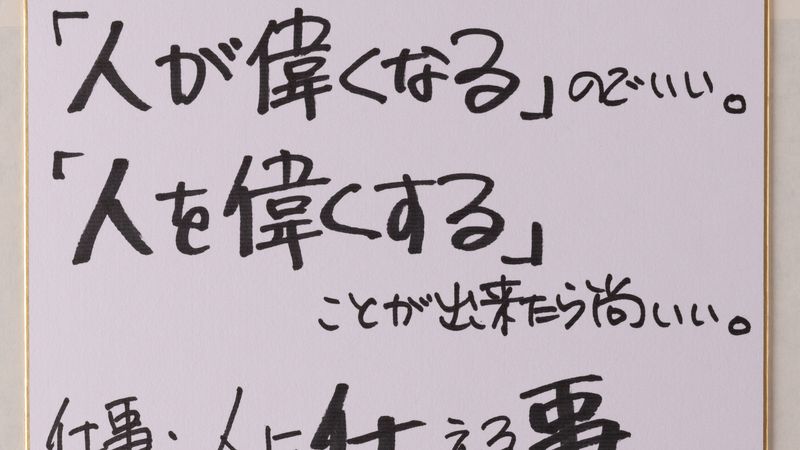 「人が偉くなる」のでいい。
「人を偉くする」
ことが出来たら尚いい。
仕事・人に仕える事